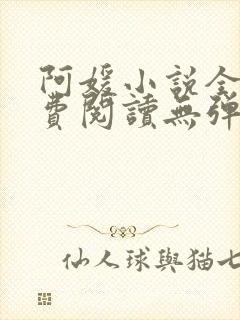 阿媛小説全
費閱讀無彈
仙人球與猫七